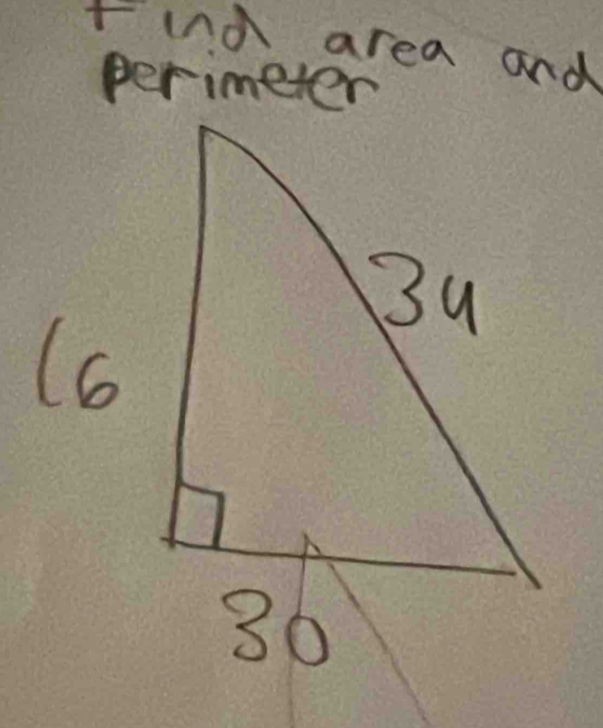 Find area and
perimeter
34
16
30